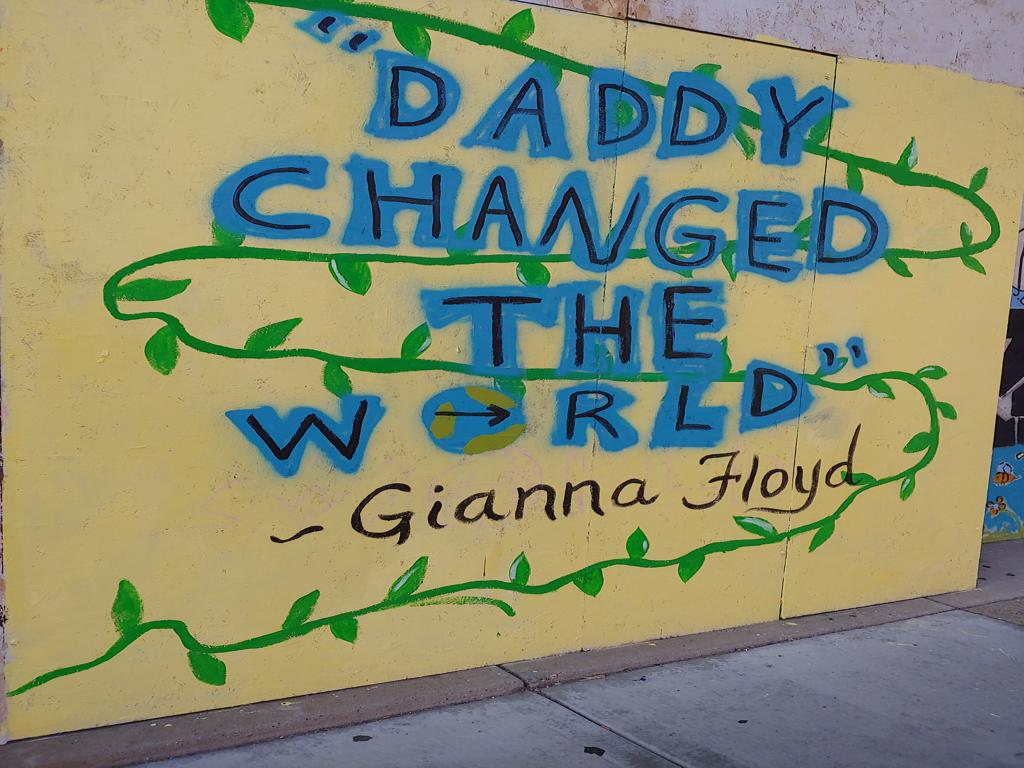 "DADDY
CHANGED
THE
WORLD"
- Gianna Floyd